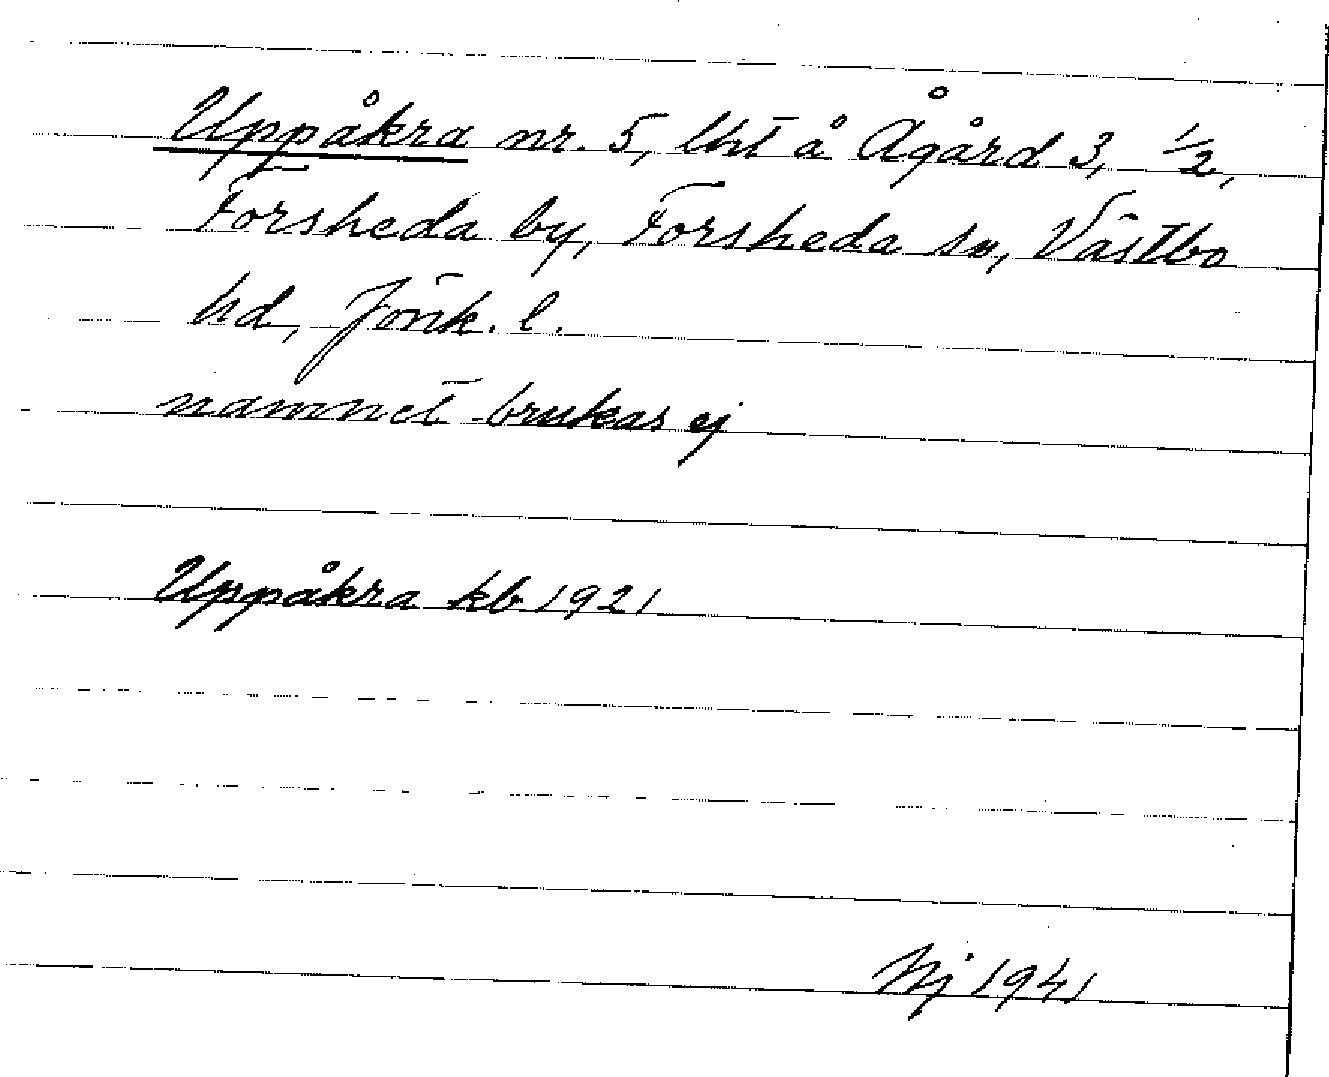 Uppåkra nr. 5, lht å Ågård 3, 1/2,
Forsheda by, Forsheda sn, Västbo
hd, Jönk. l.
namnet brukas ej
Uppåkra kb 1921
Hj 1941